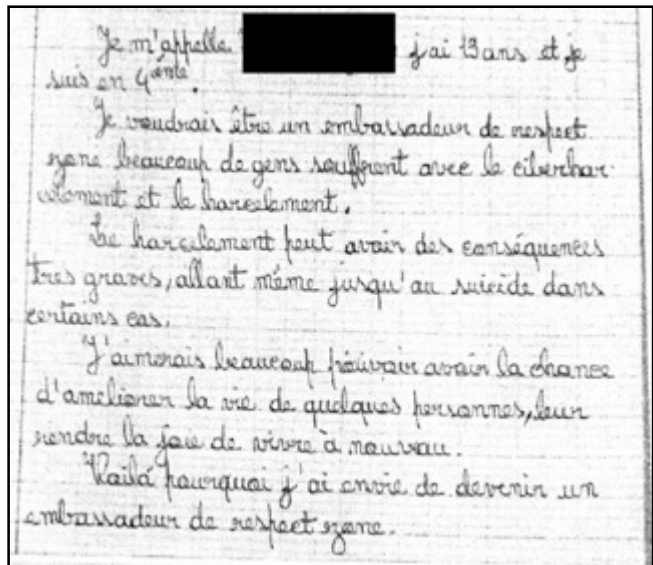 Je m'appelle j'ai 13 ans et je
suis en 4ème.
Je voudrais être un embassadeur de respect
zone beaucoup de gens souffrent avec le ciberhar-
celement et le harcelement.
Le harcelement peut avoir des conséquences
tres graves, allant même jusqu'au suicide dans
certains cas.
J'aimerais beaucoup pouvoir avoir la chance
d'ameliorer la vie de quelques personnes, leur
rendre la joie de vivre à nouveau.
Voilá pourquoi j'ai envie de devenir un
embassadeur de respect zone.